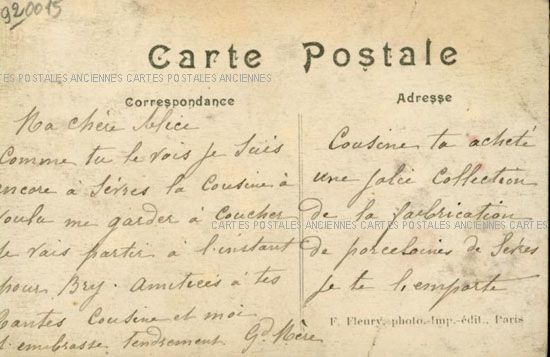 920015
Carte Postale
CARTES POSTALES ANCIENNES CARTES POSTALES ANCIENNES
Correspondance
Ma chère Alice
Comme tu le vois je suis
encore à Sèvres la Cousine à
voulu me garder à coucher
je vais partir à l'instant
pour Bry. Amitiés à tes
tantes Cousine et moi
t'embrasse tendrement Gd Mère
Adresse
Cousine ta acheté
une jolie Collection
de la fabrication
CARTES POSTALES ANCIENNES CARTES POSTALES ANCIENNES
de porcelaines de Sèvres
je te l'emporte
F. Fleury, photo.-Imp.-édit., Paris